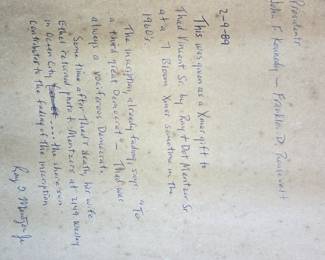 Presidents
John F. Kennedy — Franklin D. Roosevelt
2-9-89
This was given as a Xmas gift to
Thad Vincent Sr. by Roy & Dot Mentzer Sr.
at a 7 Bloom Xmas sometime in the
1960's
The inscription, already fading, says: "To
a third great Democrat". Thad was
always a vociferous Democrat.
Some time after Thad's death, his wife
Ethel returned photo to Mentzers at 2149 Wesley
in Ocean City, ... the shore sun
contributed to the fading of this inscription.
Roy J. Mentzer Jr.